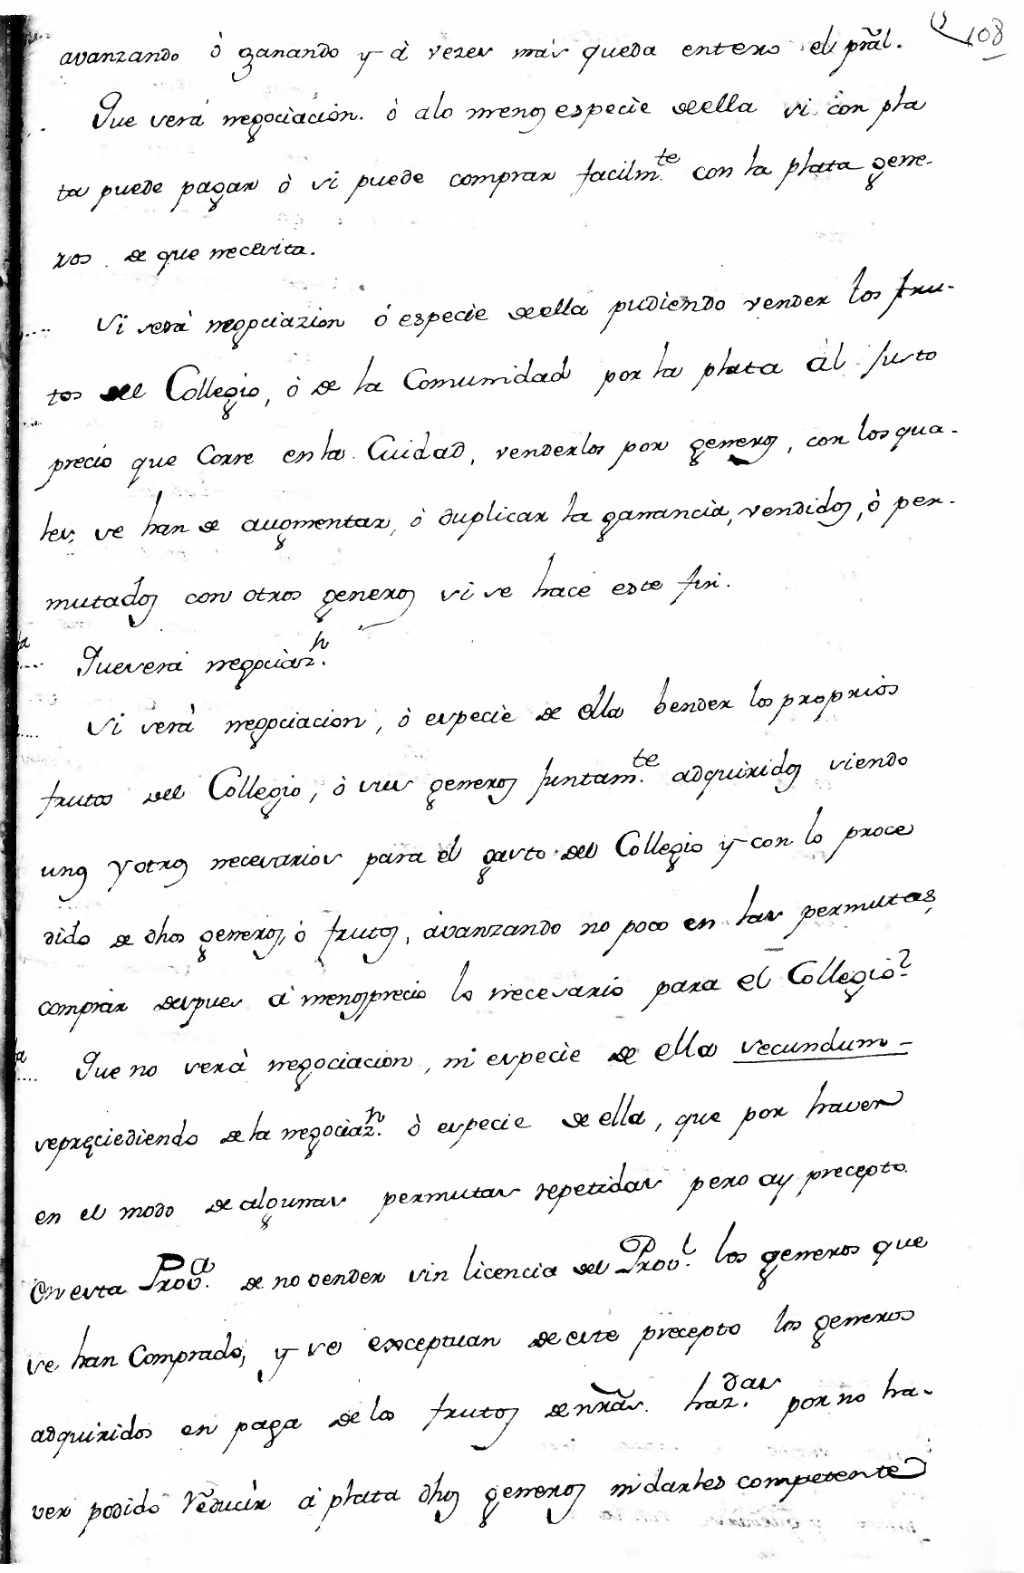 108
avanzando ò ganando y â vezes mas queda entero el prãl.
Que será negociación. ò alo menos especie deella si con pla
ta puede pagar ò si puede comprar facilmte. con la plata gene-
ros de que necesita.
Si será negociazion ó especie deella pudiendo vender los fru-
tos del Collegio, ò de la Comunidad por la plata al justo
precio que Corre en la Cuidad, venderlos por generos, con los qua-
les, se han de augmentar, ò duplicar la ganancia, vendidos, ò per-
mutados con otros generos si se hace este fin.
Queserá negociazn.
Si será negociacion, ò especie de ella bender los proprios
frutos del Collegio, ò sus generos juntamte. adquiridos siendo
unos y otros necesarios para el gasto del Collegio y con lo proce
dido de dhos generos, ò frutos, avanzando no poco en las permutas,
comprar despues a menosprecio lo necesario para el Collegio?
Que no será negociacion, ni especie de ella secundum-
sepręciediendo de la negociazn. ò especie de ella, que por haver
en el modo de algunas permutas repetidas pero ay precepto.
En esta Prova. de no vender sin licencia del Provl. los generos que
se han Comprado, y se exceptuan de este precepto los generos
adquiridos en paga de los frutos de nrãs. hazdas. por no ha-
ver podido reducir a plata dhos generos ni darles competente